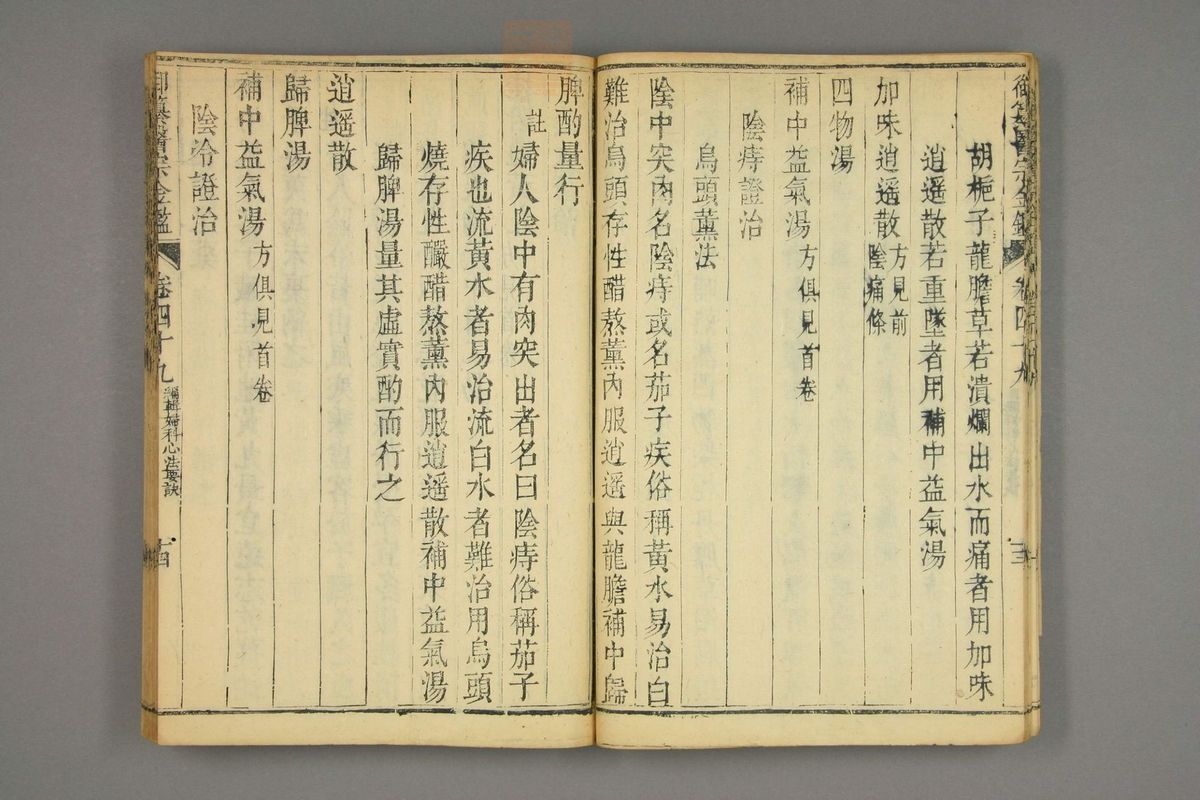 御纂醫宗金鑑 卷四十九
胡梔子龍膽草若潰爛出水而痛者用加味
逍遥散若重墜者用補中益氣湯
加味逍遥散方見前陰痛條
四物湯
補中益氣湯方俱見首卷
陰痔證治
烏頭薰法
陰中突肉名陰痔或名茄子疾俗稱黃水易治白
難治烏頭存性醋熬薰內服逍遥與龍膽補中歸
脾酌量行
註婦人陰中有肉突出者名曰陰痔俗稱茄子
疾也流黃水者易治流白水者難治用烏頭
燒存性釅醋熬薰內服逍遥散補中益氣湯
歸脾湯量其虛實酌而行之
逍遥散
歸脾湯
補中益氣湯方俱見首卷
陰冷證治
御纂醫宗金鑑 卷四十九 編輯婦科心法要訣 十四